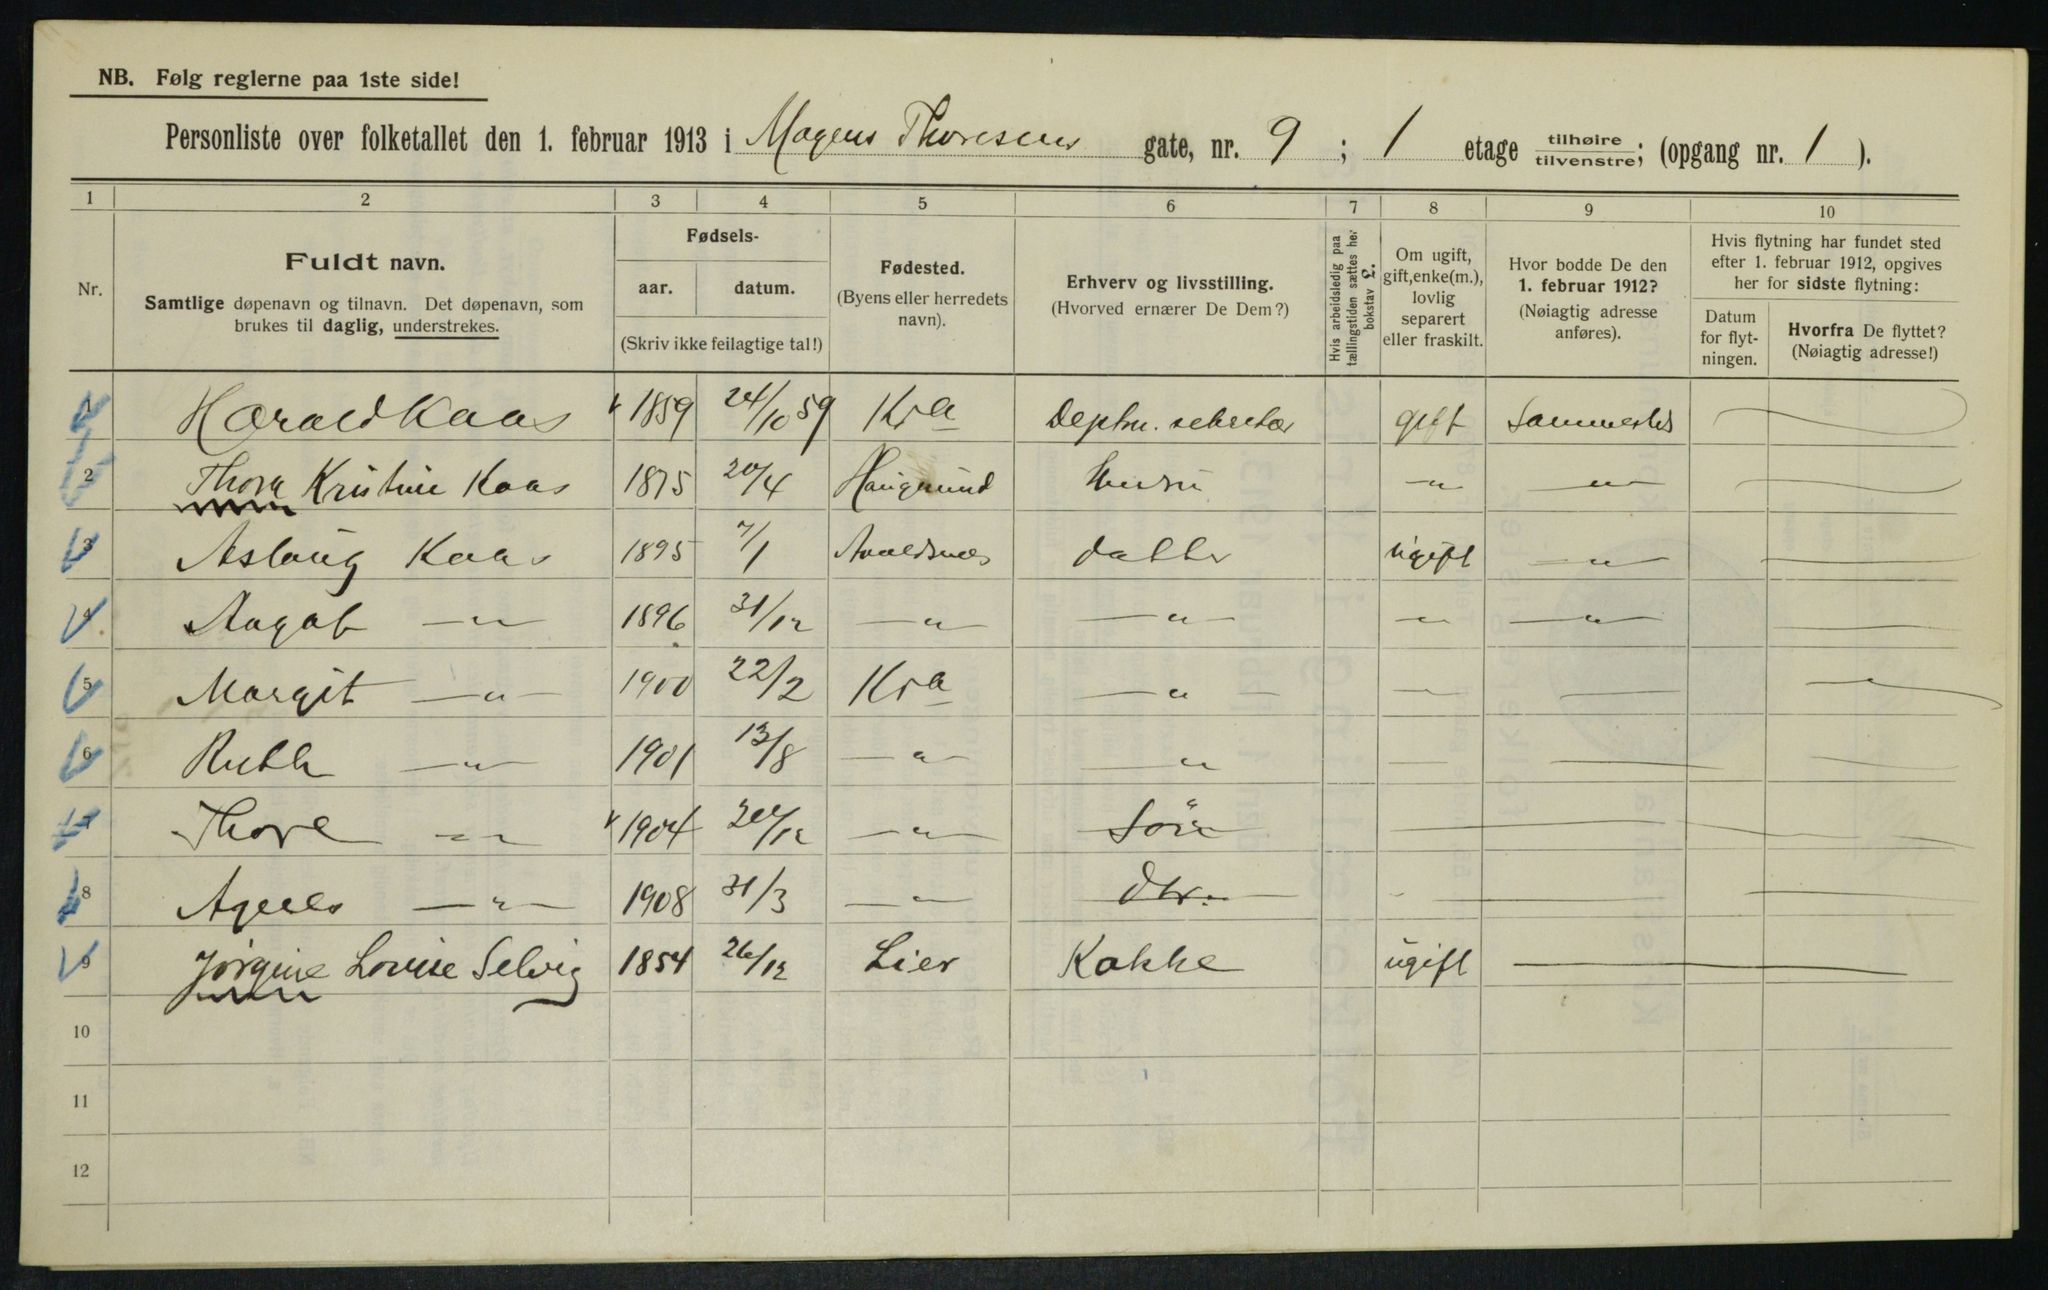 NB. Følg reglerne paa 1ste side!
Personliste over folketallet den 1. februar 1913 i Mogens Thoresens gate, nr. 9 ; 1 etage tilhøire/tilvenstre; (opgang nr. 1 ).
1 2 3 4 5 6 7 8 9 10
Nr.
Fuldt navn.
Samtlige døpenavn og tilnavn. Det døpenavn, som
brukes til daglig, understrekes.
Fødsels-
aar. datum.
(Skriv ikke feilagtige tal!)
Fødested.
(Byens eller herredets
navn).
Erhverv og livsstilling.
(Hvorved ernærer De Dem?)
Hvis arbeidsledig paa
tællingstiden sættes her
bokstav £.
Om ugift,
gift, enke(m.),
lovlig
separert
eller fraskilt.
Hvor bodde De den
1. februar 1912?
(Nøiagtig adresse
anføres).
Hvis flytning har fundet sted
efter 1. februar 1912, opgives
her for sidste flytning:
Datum
for flyt-
ningen.
Hvorfra De flyttet?
(Nøiagtig adresse!)
1 Harald Kaas 1859 24/10 59 Kra Deptm. sekretær gift Sammesteds
2 Thora Kristine Kaas 1875 20/4 Haugesund Hustru — " — — " —
3 Aslaug Kaas 1895 7/1 Avaldsnes datter ugift — " —
4 Aagot — " — 1896 31/12 — " — — " — — " — — " —
5 Margit — " — 1900 22/2 Kra — " — — " —
6 Ruth — " — 1901 13/8 — " — — " —
7 Thore — " — 1904 20/12 — " — Sön
8 Agnes — " — 1908 31/3 — " — Dtr.
9 Jörgine Lovise Selvig 1854 26/12 Lier Kokke ugift
10
11
12